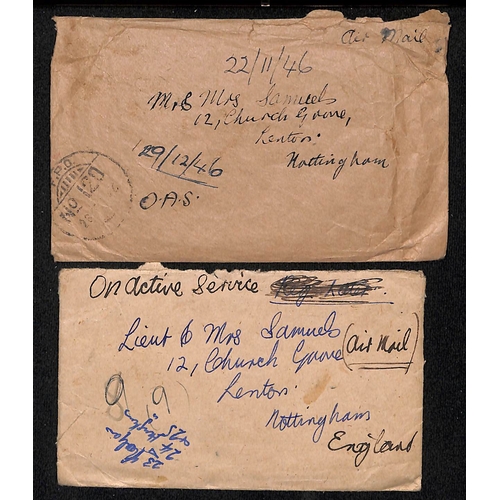 Air Mail
22/11/46
Mr & Mrs Samuels
12, Church Grove,
Lenton.
Nottingham
29/12/46
O.A.S.
F.P.O.
No 120
28
On Active Service
Lieut & Mrs Samuels
12, Church Grove
(Air Mail)
Lenton.
Nottingham
England
23
24